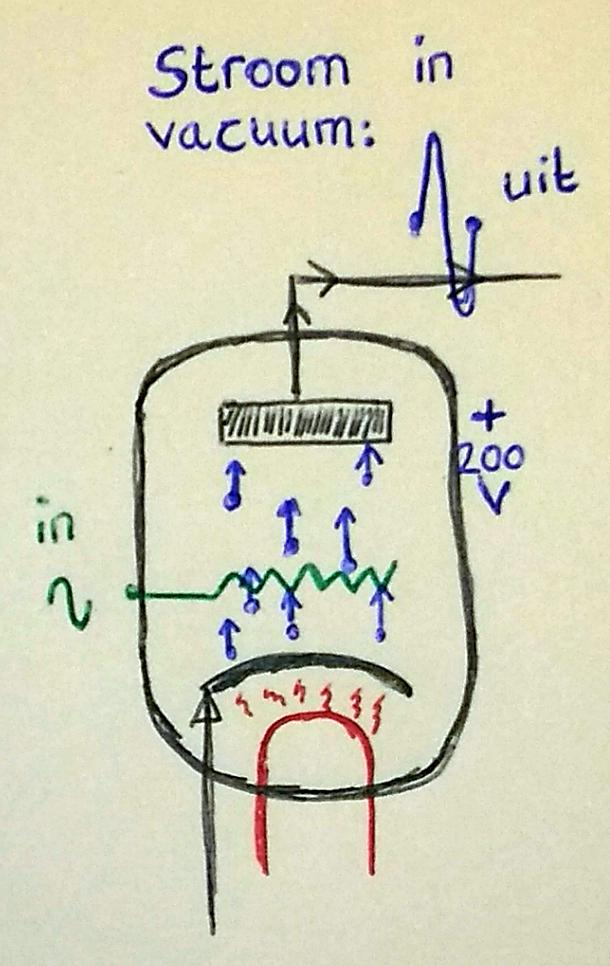 Stroom in
vacuum:
uit
+
200
V
in